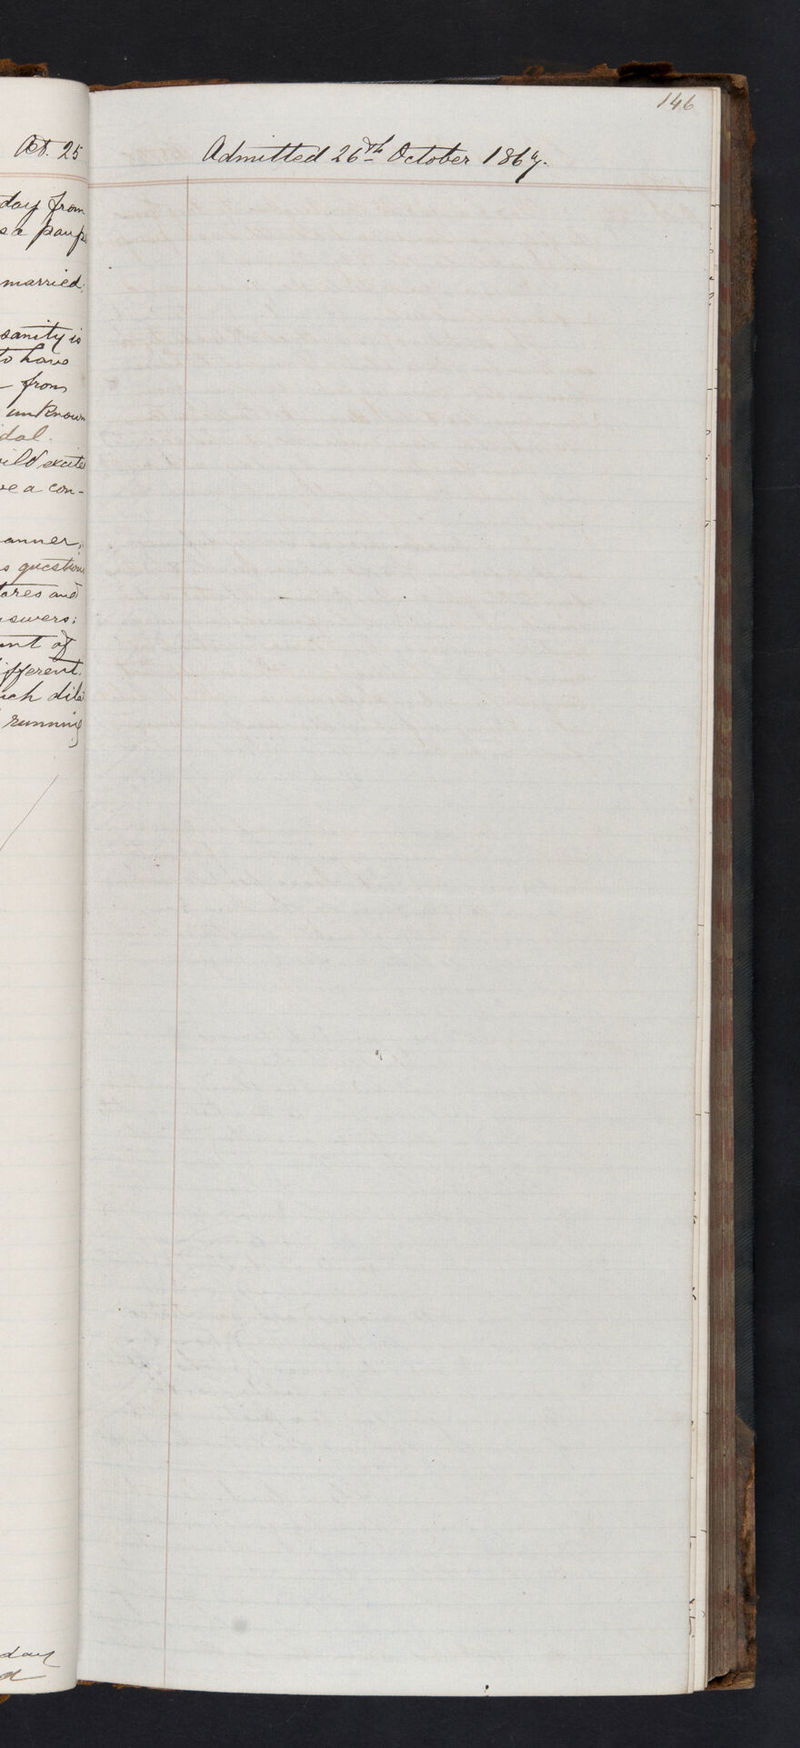 Aet. 25
day from
s a paup
married.
sanity is
to have
- from
unknown
dal.
ild excite
ve a con-
anner;
s question
tares and
swers;
ent of
ifferent.
uch dila
running
day
d
146
Admitted 26th October 1867.